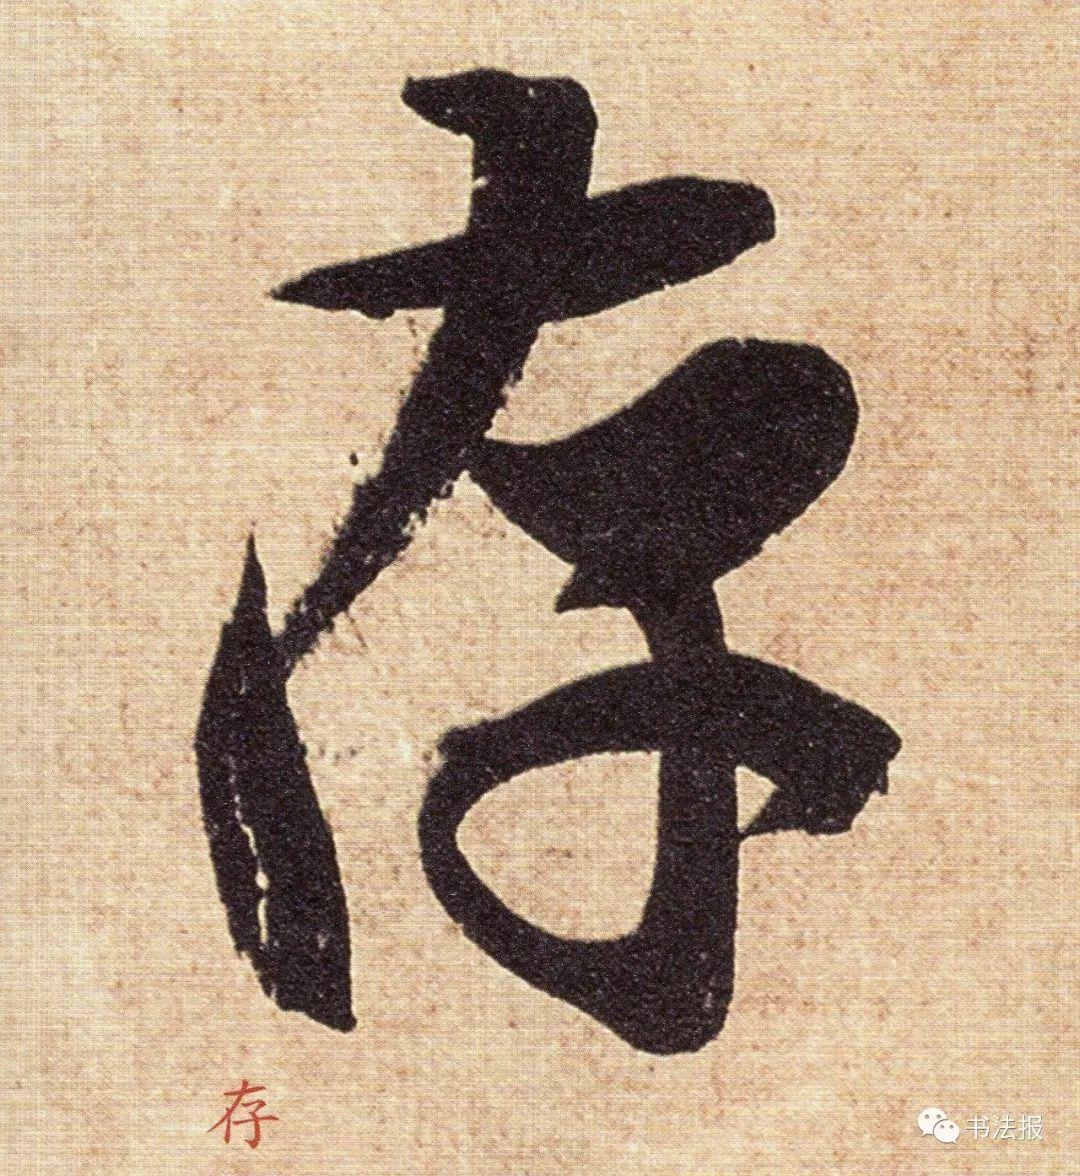 存
存
书法报